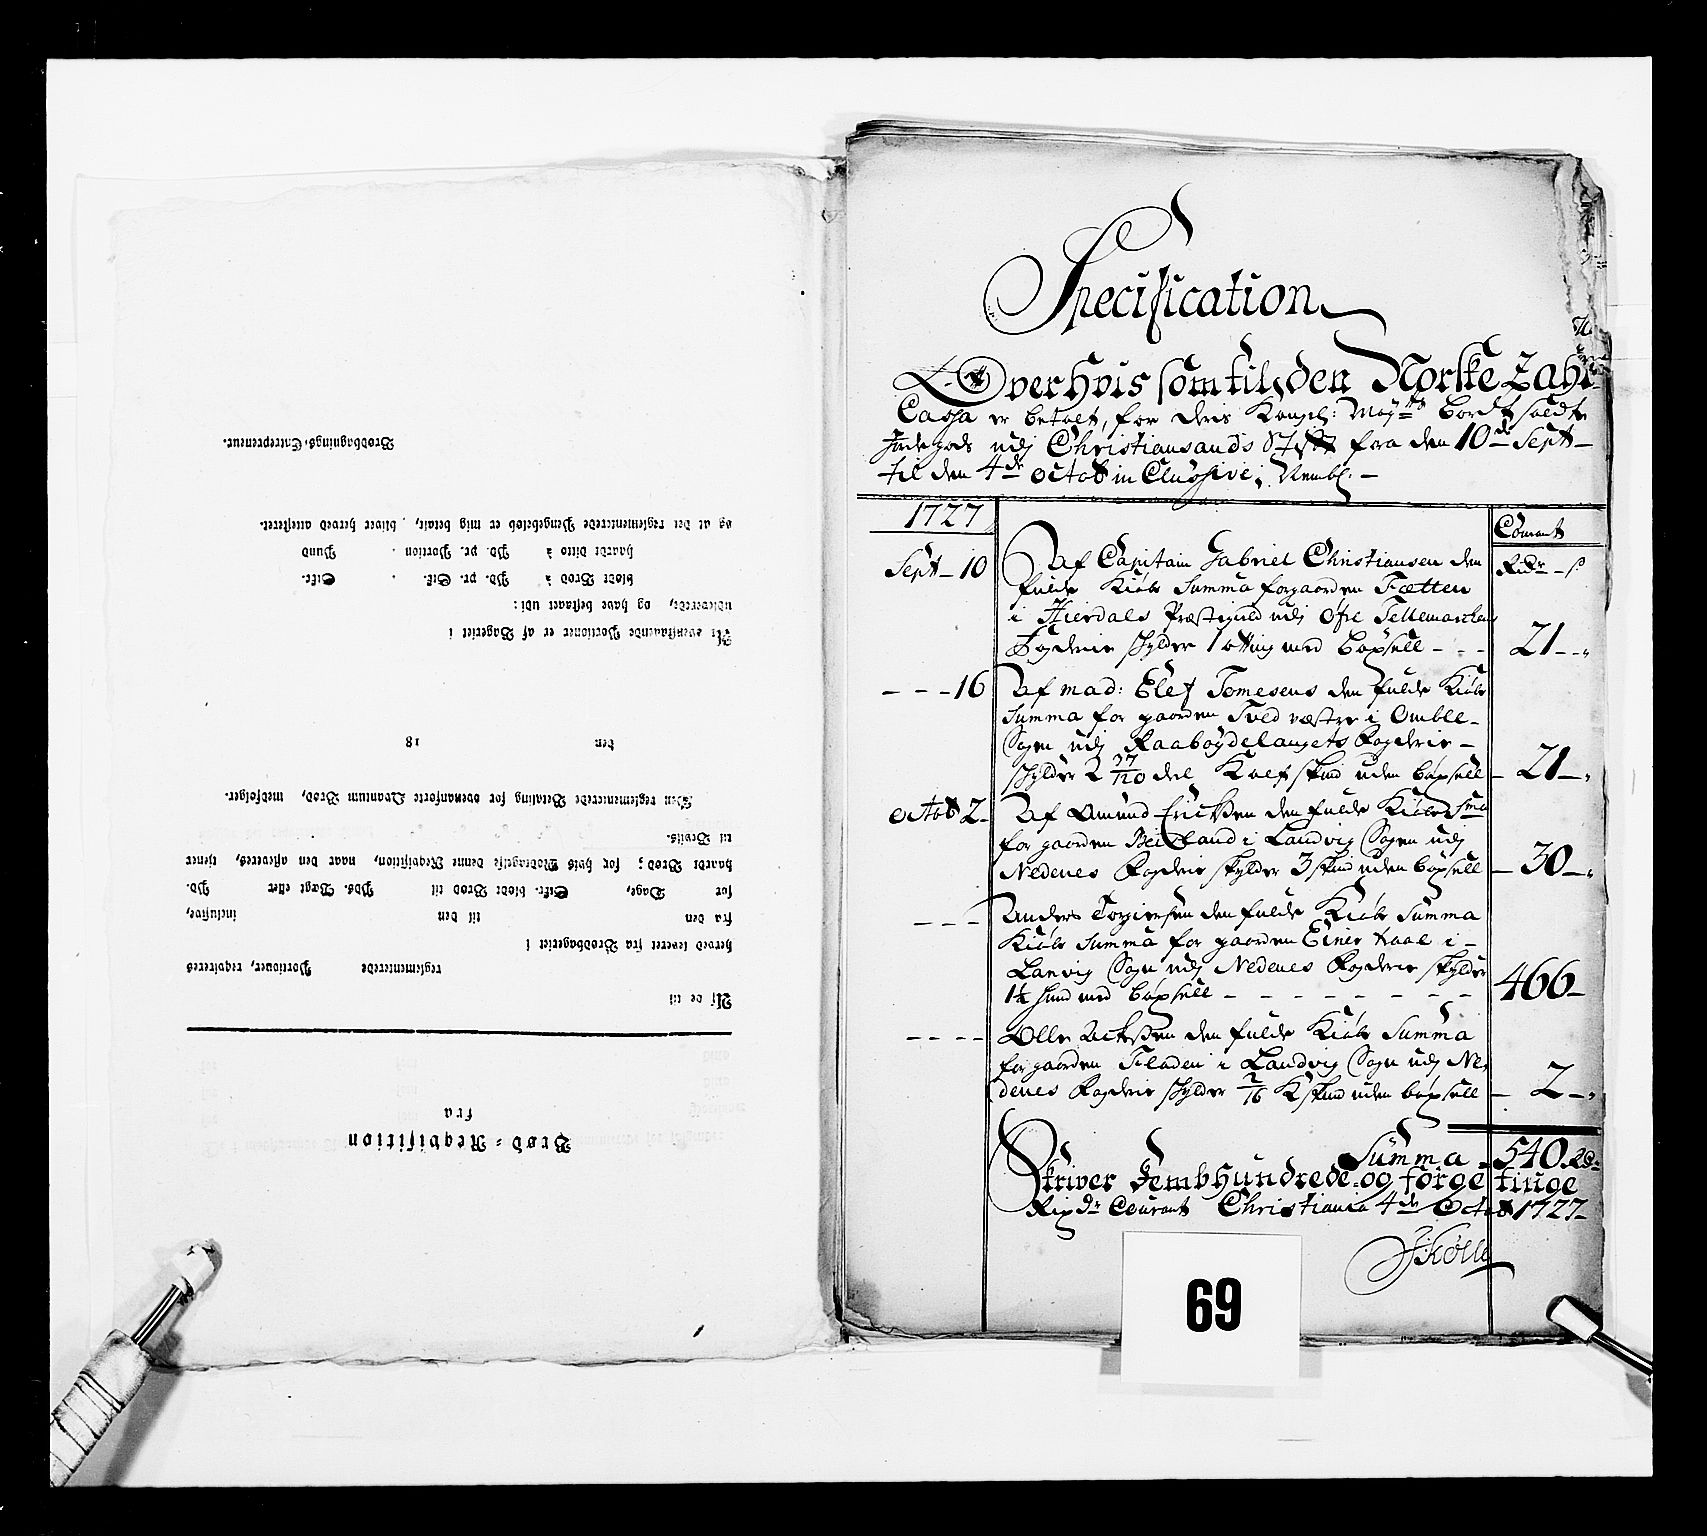 Brød-Reqvisition
fra
Af de til
reglementerede Portioner, reqvireres
herved leveret fra Brødbageriet i
fra den til den inclusive,
for Dage, Stkr. blødt Brød til Pds. Vægt eller Pd.
haardt Brød; for hvis Modtagelse denne Reqvisition, naar den afleveres, tjener
til Beviis.
Den reglementerede Betaling for ovenanførte Qvantum Brød, medfølger.
den 18
At ovenstaaende Portioner er af Bageriet i
udleverede, og have bestaaet udi:
blødt Brød à Pd. pr. Stk. . Stkr.
haardt ditto à Pd. pr. Portion . Pund
og at det reglementerede Pengebeløb er mig betalt, bliver herved attesteret.
Brødbagnings-Entrepreneur.
Specification
Over hvis som til den Norske Zahl
Cassa er betalt, for deris Kongel: May^ts bort soldte
Jordegods udj Christiansands Stift fra den 10^de Sept
til den 4^de octob inclusive, Nembl:
1727
Courant
Sept - 10 Af Capitain Gabriel Christiansen den Rdr - ß
fulde Kiøbe Summa for gaarden Fætten
i Hierdals Præstegield udj Øfre Tellemarckens
Fogderie skylder 1 otting med böxsell - - - 21 - -
- - - 16 Af mad: Elef Tomesens den fulde Kiøbe
Summa for gaarden Tved væstre i Omble-
Sogn udj Raabøydelaugets Fogderie -
skylder 2 37/120 deel Kalfskind uden böxsell - 21 -
octob 2 - Af Omund Erichsen den fulde Kiøbe Sma
for gaarden Beisland i Landvig Sogn udj
Nedenes Fogderie skylder 3 skind uden böxsell - 30 -
- - - Anders Torgiersen den fulde Kiøbe Summa
Kiøbe Summa for gaarden Einer i -
Lanvig Sogn udj Nedenes Fogderie skylder
1½ hud med böxsell - - - - - - - - 466 -
- - - - Olle den fulde Kiøbe Summa
for gaarden Fladen i Landvig Sogn udj Ne-
denes Fogderie skylder 2/16 K skind uden böxsell - 2 -
Summa - 540 Rd
Skriver Femb Hundrede og förgetiuge
Rixdr Courant Christiania 4^de Octob 1727
69